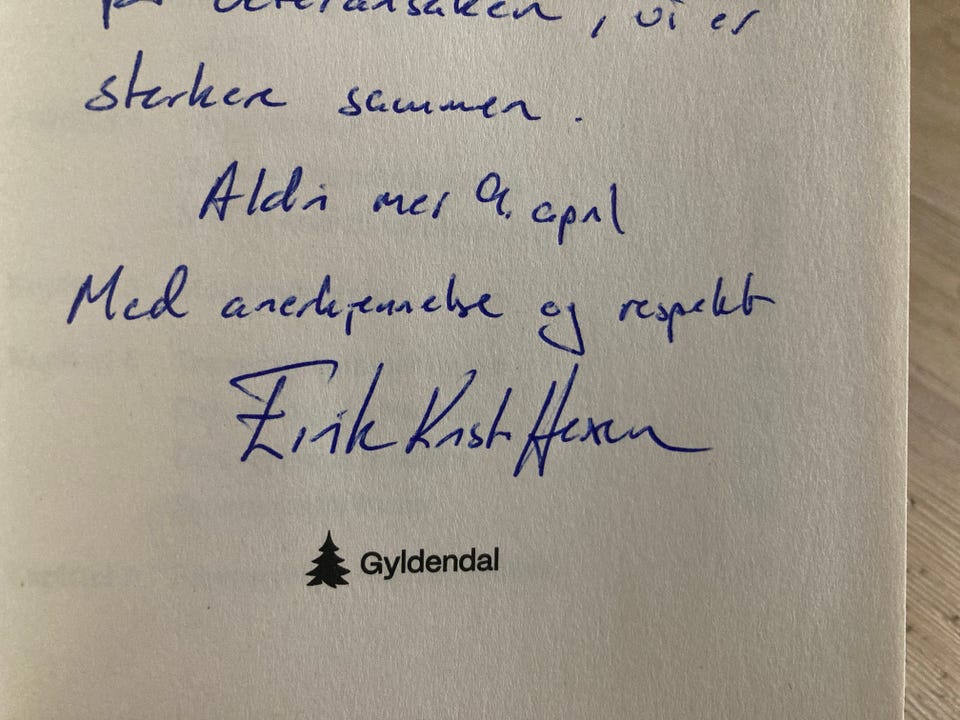 på veteransaken, vi er
sterkere sammen.
Aldri mer 9. april
Med anerkjennelse og respekt
Eirik Krist Hexen
Gyldendal